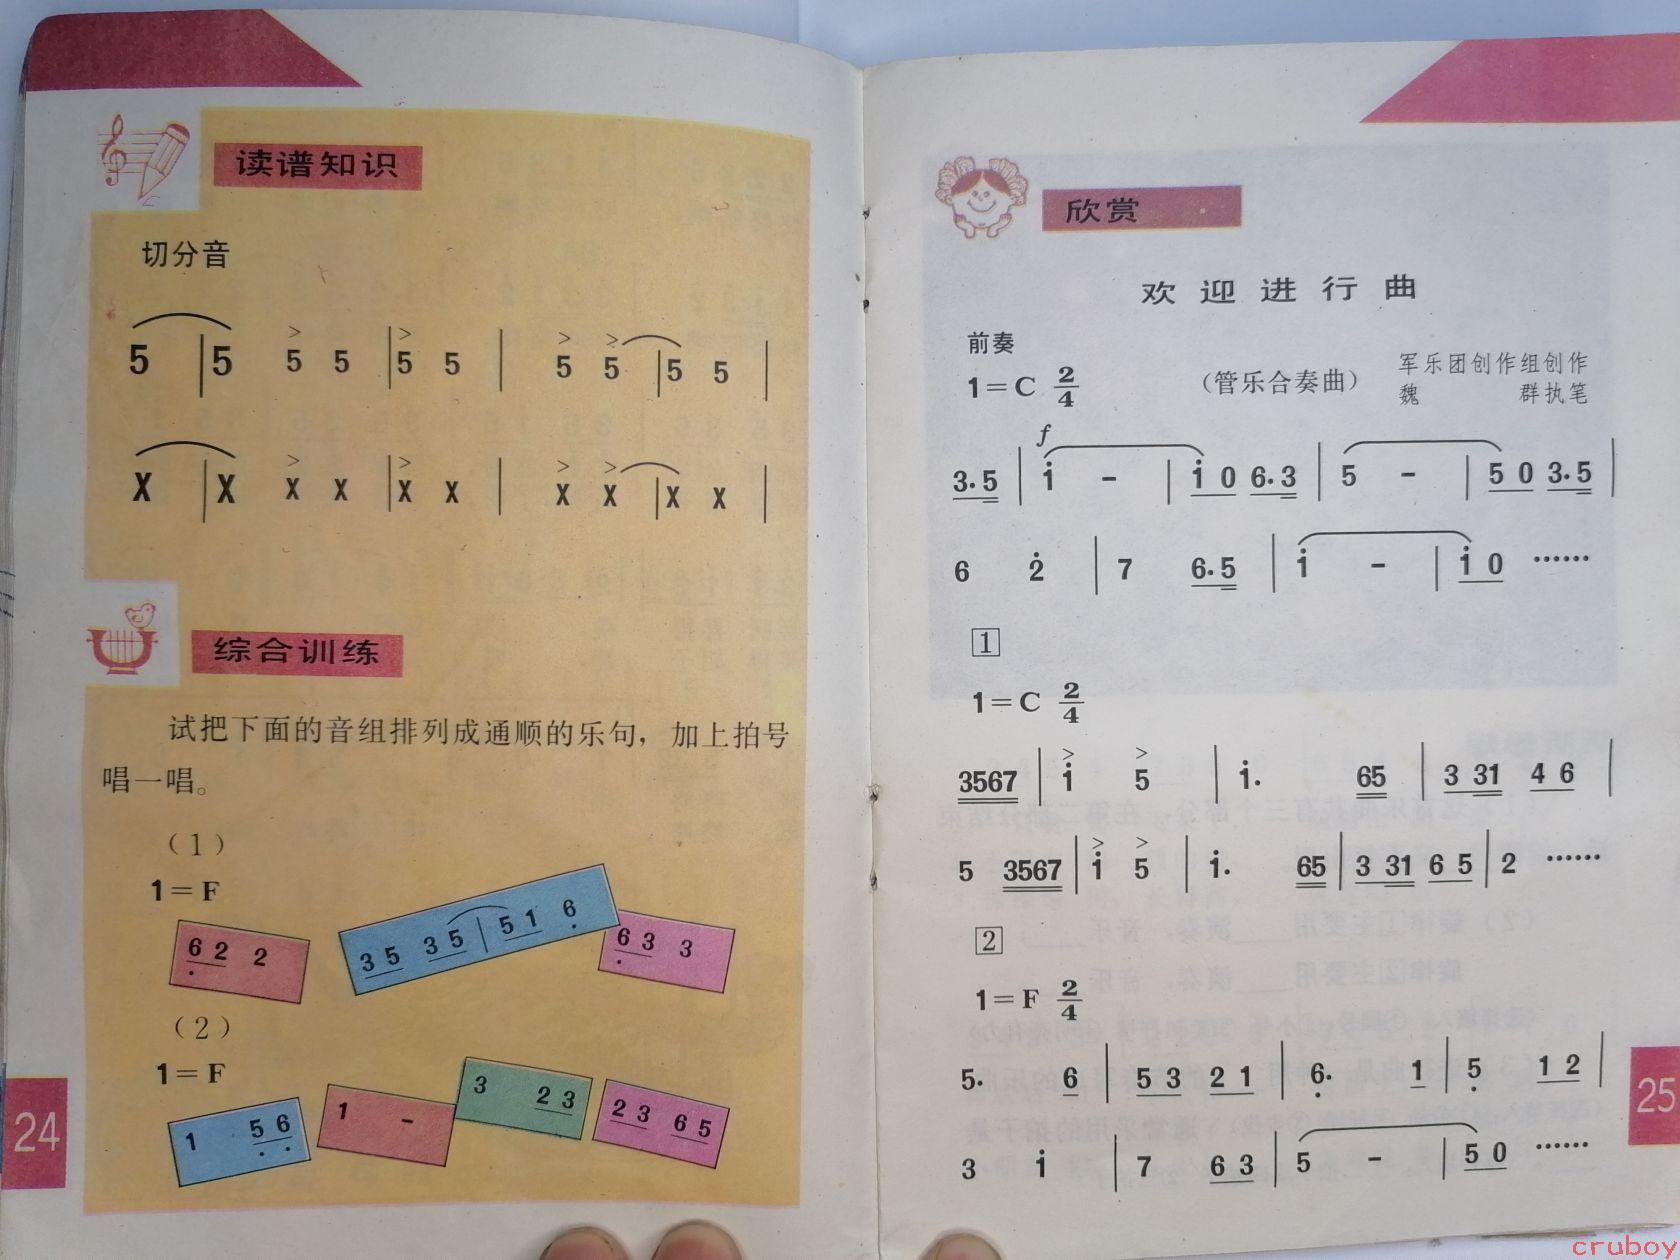 读谱知识
切分音
5 | 5 5 5 | 5 5 | 5 5 | 5 5 |
X | X X X | X X | X X | X X |
综合训练
试把下面的音组排列成通顺的乐句，加上拍号
唱一唱。
（1）
1=F
6 2 2
3 5 3 5 | 5 1 6
6 3 3
（2）
1=F
1 5 6
1 -
3 2 3
2 3 6 5
24
欣赏
欢迎进行曲
前奏
1=C 2/4
（管乐合奏曲）
军乐团创作组创作
魏 群执笔
f
3·5 | i - | i 0 6·3 | 5 - | 5 0 3·5 |
6 2̇ | 7 6·5 | i - | i 0 ……
1
1=C 2/4
3567 | i 5 | i· 65 | 3 31 4 6 |
5 3567 | i 5 | i· 65 | 3 31 6 5 | 2 ……
2
1=F 2/4
5· 6 | 5 3 2 1 | 6· 1 | 5 1 2 |
3 i | 7 6 3 | 5 - | 5 0 ……
25
cruboy